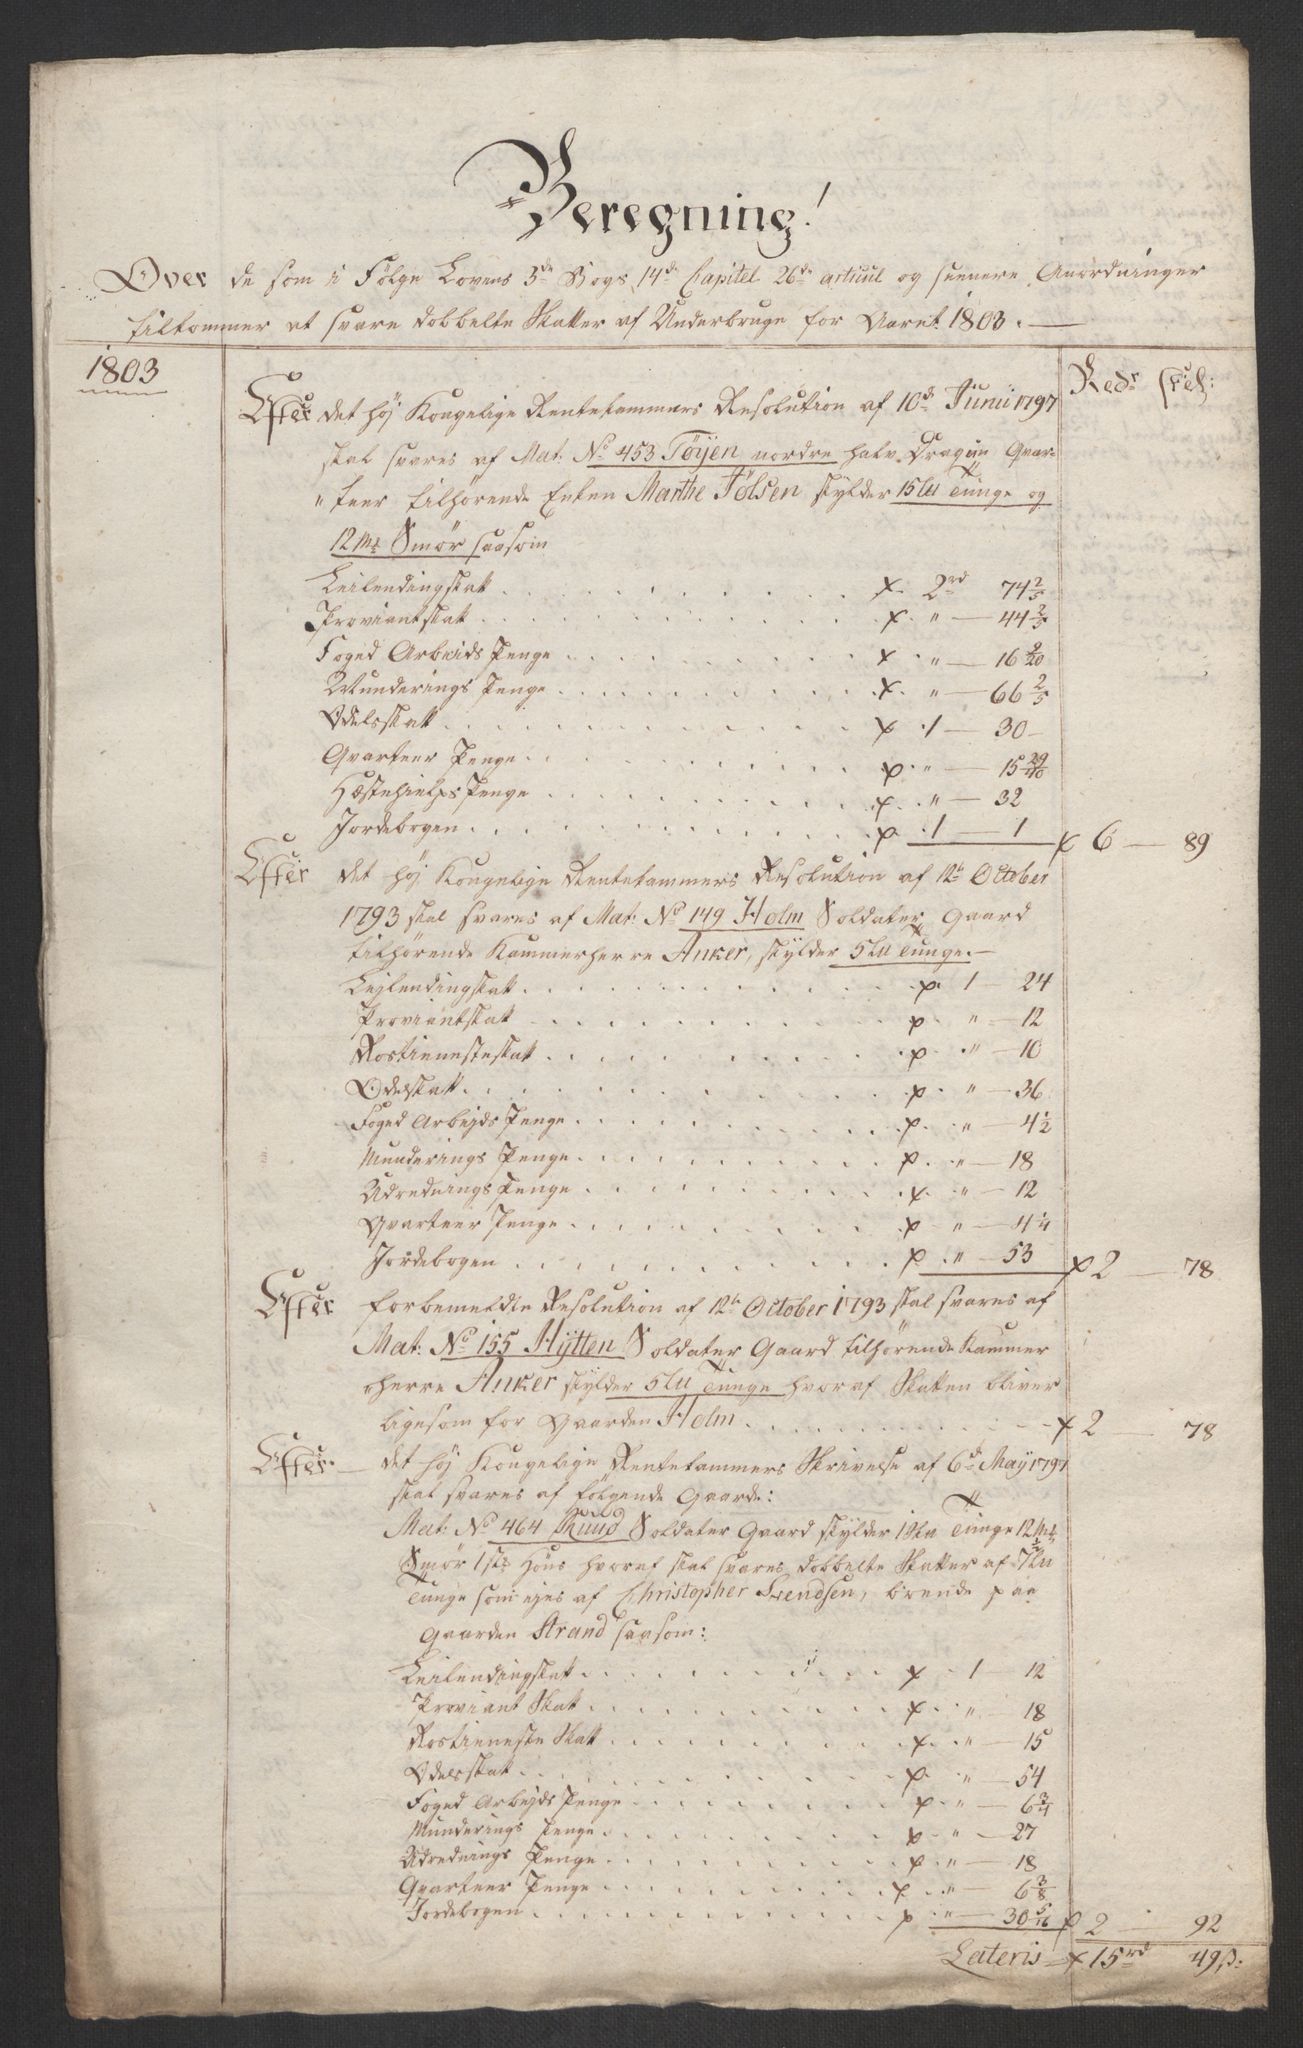 Beregning!
Over de som i Følge Lovens 3de Bogs 14de Capitel 26de articul og seenere Anordninger
tilkommer at svare dobbelte Skatter af Underbruge for Aaret 1803.
1803
Rdr Skl:
Efter det høj Kongelige Rentekammers Resolution af 10de Junii 1797
skal svares af Mat: No 453 Tøyen nordre halv Dragun Qvar-
"teer tilhørende Enken Marthe Jølsen skylder 15 Lu Tunge og
12 Mk Smør saasom
Leilendingskat . . . 2rd 74 2/5
Proviantskat . . . " — 44 2/5
Foged Arbeids Penge . . . " — 16 9/20
Munderings Penge . . . " — 66 2/5
Odelsskatt . . . 1 — 30
Qvarteer Penge . . . " — 15 29/40
Hæstehielps Penge . . . " — 32
Jordebogen . . . 1 — 1 6 — 89
Efter det høj Kongelige Rentekammers Resolution af 12te October
1793 skal svares af Mat: No 149 Holm Soldater Gaard
tilhørende Kammerherre Anker, skylder 5 Lu Tunge.—
Lejlendingskat . . . 1 — 24
Proviantskat . . . " — 12
Rostienesteskat . . . " — 10
Odelskatt . . . " — 36
Foged Arbejds Penge . . . " — 4 1/2
Munderings Penge . . . " — 18
Udrednings Penge . . . " — 12
Qvarteer Penge . . . " — 4 1/4
Jordebogen . . . " — 53 2 — 78
Efter forbemeldte Resolution af 12te October 1793 skal svares af
Mat: No 155 Hytten Soldater Gaard tilhørende Kammer
"herre Anker skylder 5 Lu Tunge hvoraf Skatten bliver
ligesom for Gaarden Holm . . . 2 — 78
Efter det høj Kongelige Rentekammers Skrivelse af 6de May 1797
skal svares af følgende Gaarde:
Mat: No 464 Ruud Soldater Gaard skylder Tunge 12 Mk
Smør 1 stk Høns hvoraf skal svares dobbelte Skatter af 7 1/2 Lu
Tunge som ejes af Christopher Svendsen, boende paa
Gaarden Strand saasom:
Leilendingskat . . . 1 12
Proviant Skat . . . " — 18
Rostieneste Skatt . . . " — 15
Odelsskat . . . " — 54
Foged Arbejds Penge . . . " — 6 3/4
Munderings Penge . . . " — 27
Udrednings Penge . . . " — 18
Qvarteer Penge . . . " — 6 3/8
Jordebogen . . . " — 30 5/16 2 — 92
Lateris 15rd 49 ß: